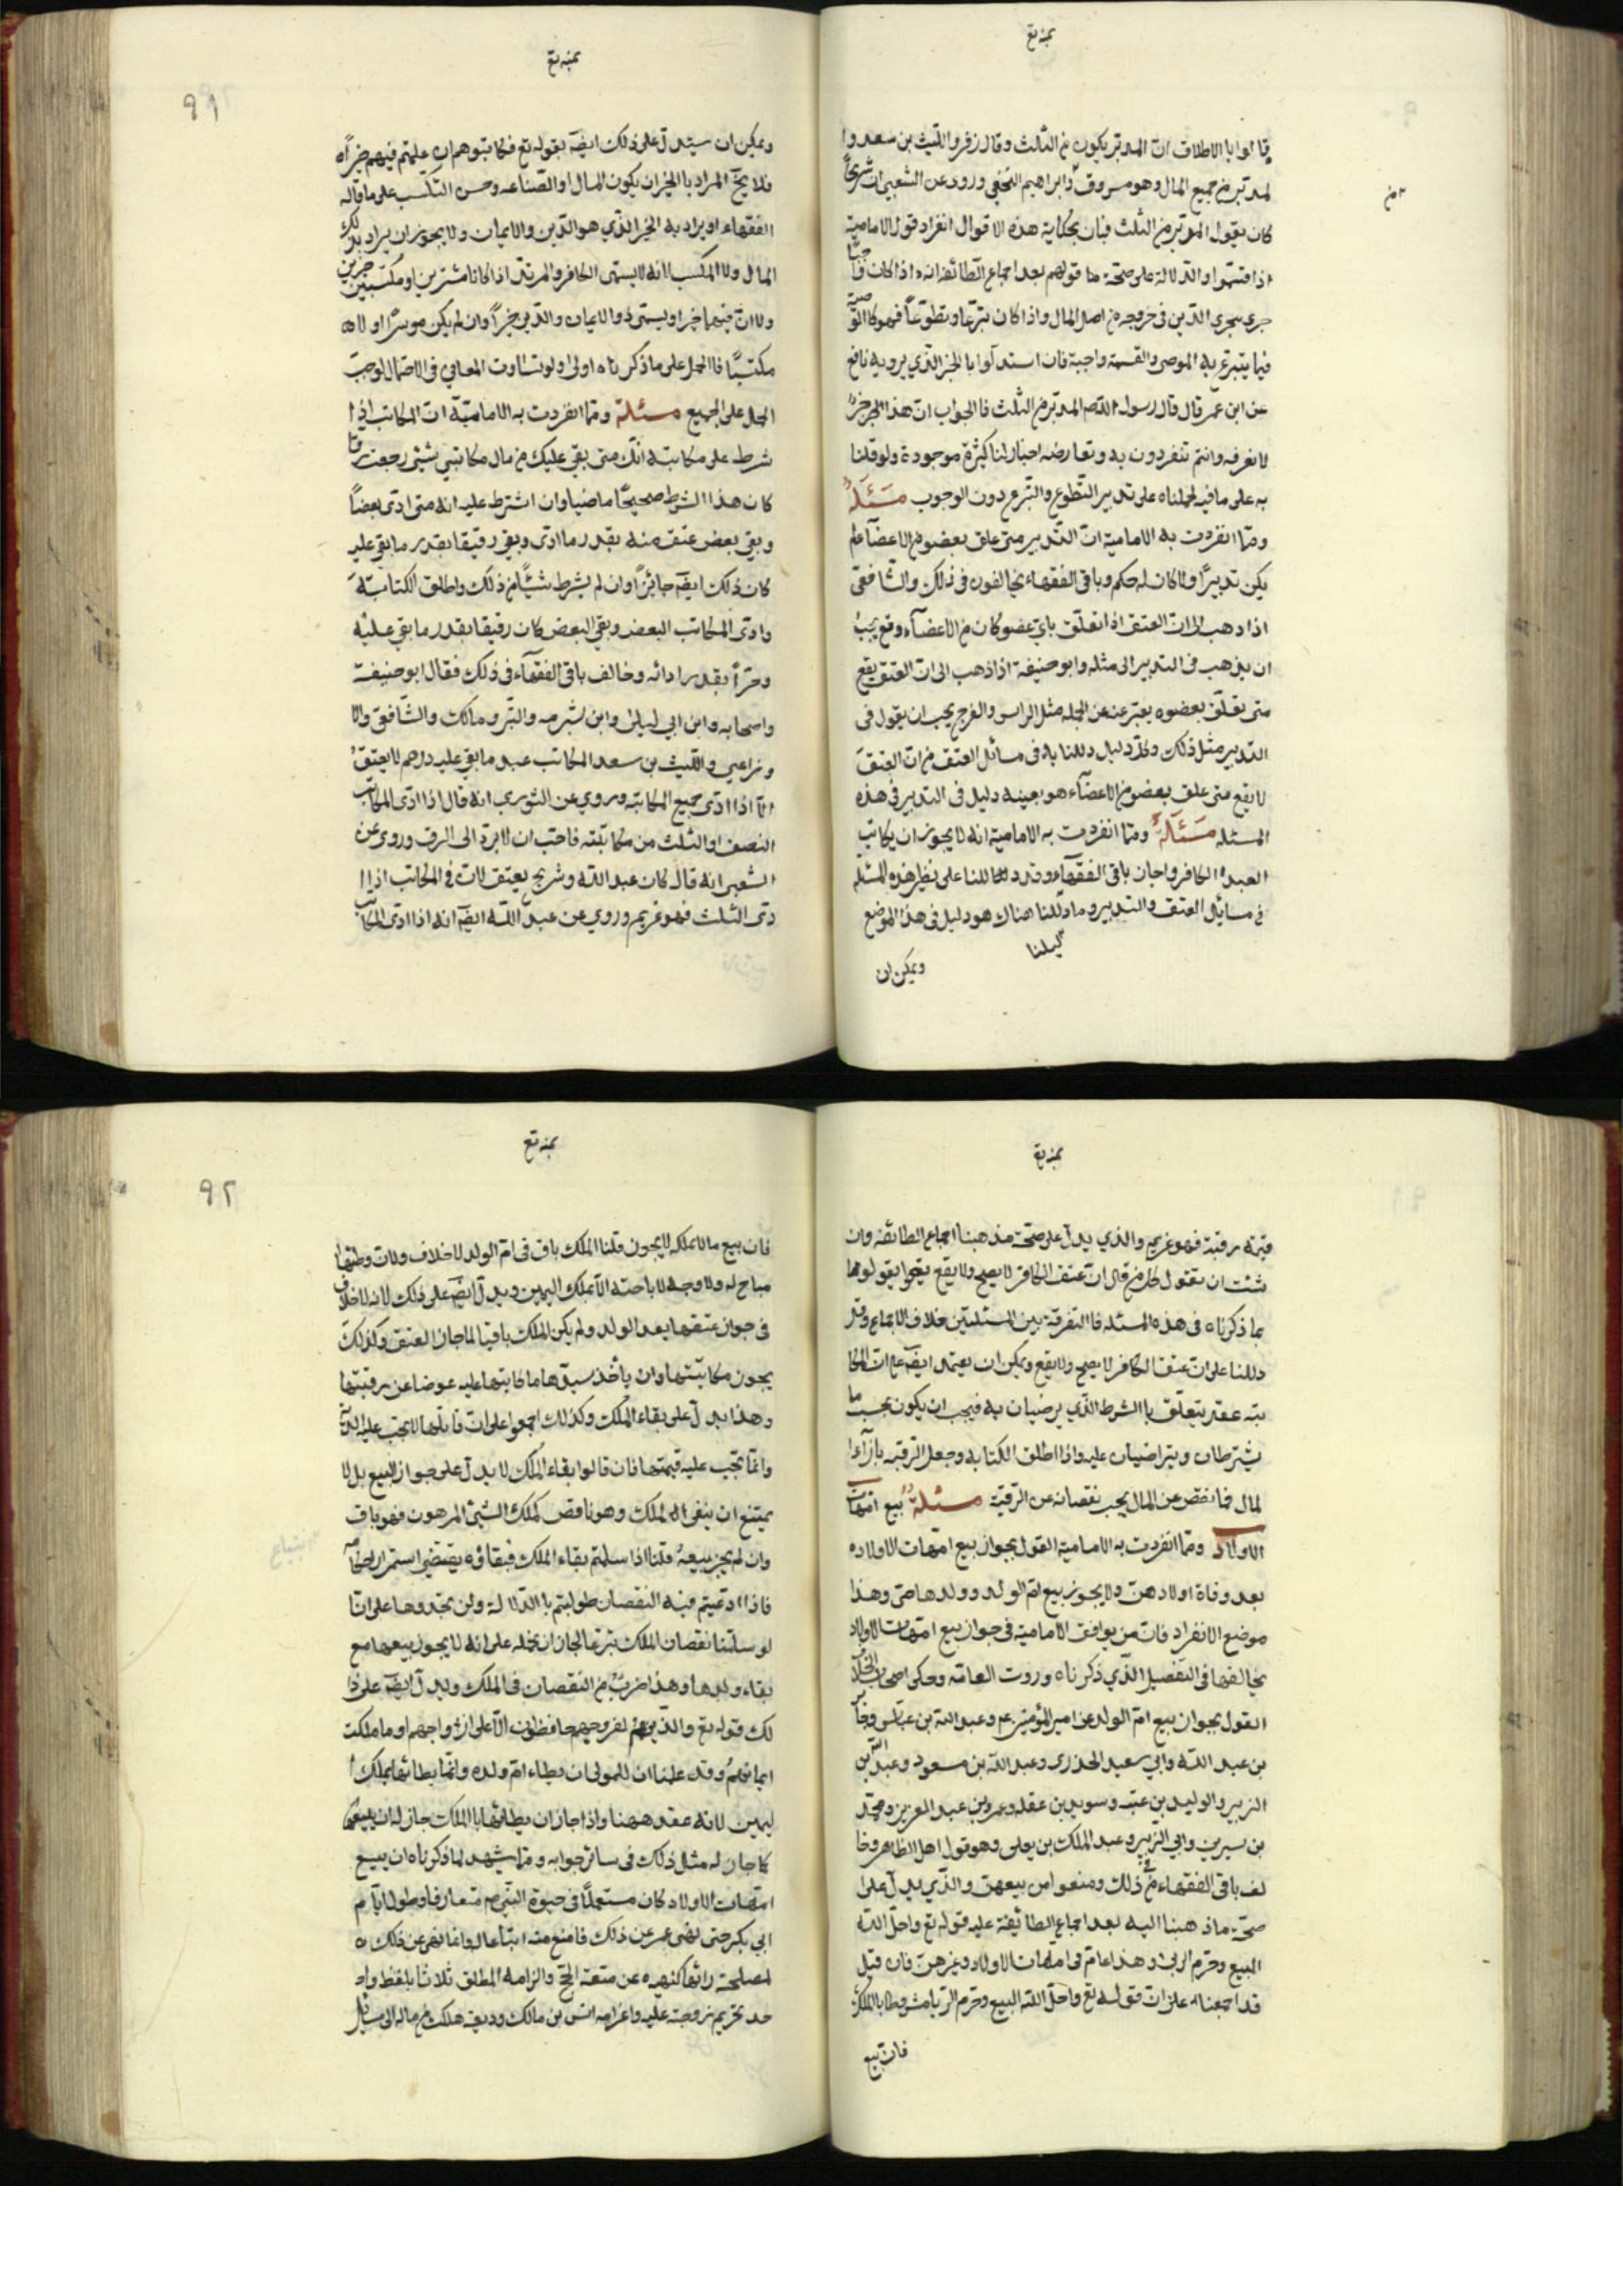 بمنه تع
قالوا بالاطلاق ان المدبر يكون من الثلث وقال زفر والليث بن سعد وا
لمدبر من جميع المال وهو مسروق وابراهيم النخعي وروى عن الشعبي ان شريحا
كان يقول المدبر من الثلث فبان بحكاية هذه الاقوال انفراد قول الامامية
اذا قسموا والدلالة على صحة قولهم بعد اجماع الطائفة انه اذا كان
جرى مجرى الدين في خروجه من اصل المال واذا كان تبرعا وتطوعا فهو كالوصية
فيما يتبرع به الموصى والقسمة واجبة فان استدلوا بالخبر الذي يرويه نافع
عن ابن عمر قال قال رسول الله ص المدبر من الثلث فالجواب ان هذا خبر
لا نعرفه وانتم تنفردون به وتعارضه اخبار لنا كثيرة موجودة ولو قلنا
به على ما فيه لحملناه على تدبير التطوع والتبرع دون الوجوب مسئلة
ومما انفردت به الامامية ان التدبير متى علق بعضو من الاعضاء لم
يكن تدبيرا ولا كان له حكم وباقي الفقهاء يخالفون في ذلك والشافعي
اذا ذهب الى ان العتق اذا تعلق باي عضو كان من الاعضاء وقع يجب
ان يذهب في التدبير الى مثله وابو حنيفة اذا ذهب الى ان العتق يقع
متى تعلق بعضو يعبر عنه عن الجملة مثل الراس والفرج يجب ان يقول في
التدبير مثل ذلك وكل دليل دللنا به في مسائل العتق من ان العتق
لا يقع متى علق بعضو من الاعضاء هو بعينه دليل في التدبير في هذه
المسئله مسئلة ومما انفردت به الامامية انه لا يجوز ان يكاتب
العبد الكافر واجاز باقي الفقهاء وقد دللنا على نظير هذه المسئلة
في مسائل العتق والتدبير وما دللنا هناك هو دليل في هذا الموضع
ليلنا
ويمكن ان
بمنه تع
٩١
ويمكن ان يستدل على ذلك ايضا بقوله تع فكاتبوهم ان علمتم فيهم خيرا
فلا يخ المراد بالخير ان يكون المال او الصناعه وحسن التكسب على ما قاله
الفقهاء او يراد به الخير الذي هو الدين والايمان ولا يجوز ان يراد بذلك
المال ولا المكسب لانه لا يسمى الكافر والمرتد اذا كانا مثريين او مكتسبين خيرين
ولا ان فيهما خيرا ويسمى ذو الايمان والدين خيرا وان لم يكن موسرا ولا
مكتسبا فالحمل على ما ذكرناه اولى ولو تساوت المعاني في الاحتمال لوجب
الحمل على الجميع مسئلة ومما انفردت به الامامية ان المكاتب اذا
شرط على مكاتبه انك متى بقى عليك من مال مكاتبتي شيئ رجعت رقا
كان هذا الشرط صحيحا ماضيا وان اشترط عليه انه متى ادى بعضا
وبقي بعض عتق منه بقدر ما ادى وبقي رقيقا بقدر ما بقي عليه
كان ذلك ايضا جائزا وان لم يشرط شيئا من ذلك واطلق الكتابة
وادى المكاتب البعض وبقي البعض كان رقيقا بقدر ما بقي عليه
وحرا بقدر ادائه وخالف باقي الفقهاء في ذلك فقال ابو حنيفة
واصحابه وابن ابي ليلى وابن شبرمه والبتي ومالك والشافعي والا
وزاعي والليث بن سعد المكاتب عبد ما بقي عليه درهم لا يعتق
الا اذا ادى جميع المكاتبه وروي عن الثوري انه قال اذا ادى المكاتب
النصف او الثلث من مكاتبته فاحب ان لا يرد الى الرق وروى عن
الشعبي انه قال كان عبد الله وشريح يعتق لان في المكاتب اذا ا
دى الثلث فهو غريم وروي عن عبد الله ايضا انه اذا ادى المكاتب
بمنه تع
قيمة رقبته فهو غريم والذي يدل على صحة مذهبنا اجماع الطائفه وان
شئت ان تقول كل من قال ان عتق الكافر لا يصح ولا يقع يقول
بما ذكرناه في هذه المسئله فالتفرقة بين المسئلتين خلاف الاجماع وقد
دللنا على ان عتق الكافر لا يصح ولا يقع ويمكن ان يعتمد ايضا على ان المكا
تبه عقد يتعلق بالشرط الذي يرضيان به فيجب ان يكون بحسب ما
يشترطان ويتراضيان عليه واذا اطلق الكتابه وجعل الرقبه بازاء ا
لمال فما نقص عن المال يجب نقصانه عن الرقبة مسئلة بيع امهات
الاولاد ومما انفردت به الامامية القول بجواز بيع امهات الاولاد
بعد وفاة اولادهن ولا يجوز بيع ام الولد وولدها حي وهذا
موضع الانفراد فان من يوافق الامامية في جواز بيع امهات الاولاد
يخالفها في التفصيل الذي ذكرناه وروت العامه وحكى اصحاب الخلاف
القول بجواز بيع ام الولد عن امير المؤمنين ع وعبد الله بن عباس وجابر
بن عبد الله وابي سعيد الخدرى وعبد الله بن مسعود وعبد الله بن
الزبير والوليد بن عقبه وسويد بن غفله وعمر بن عبد العزيز ومحمد
بن سيرين وابي الزبير وعبد الملك بن يعلى وهو قول اهل الظاهر وخا
لف باقي الفقهاء في ذلك ومنعوا من بيعهن والذي يدل على
صحة ما ذهبنا اليه بعد اجماع الطائفة عليه قوله تع واحل الله
البيع وحرم الربى وهذا عام في امهات الاولاد وغيرهن فان قيل
قد اجمعنا على ان قوله تع واحل الله البيع وحرم الربا مشروط بالملك
فان بيع
بمنه تع
٩٢
فان بيع ما لا يملكه لا يجوز قلنا الملك باق في ام الولد لا خلاف ولان وطئها
مباح له ولا وجه لاباحته الا بملك اليمين ويدل ايضا على ذلك لانه لا خلاف
في جواز عتقها بعد الولد ولو لم يكن الملك باقيا لما جاز العتق وكذلك
يجوز مكاتبتها وان ياخذ سيدها ما كاتبها عليه عوضا عن رقبتها
وهذا يدل على بقاء الملك وكذلك اجمعوا على ان قاتلها لا يجب عليه الدية
وانما تجب عليه قيمتها فان قالوا بقاء الملك لا يدل على جواز البيع بل لا
يمتنع ان يبقى الملك وهو ناقص كملك الشيئ المرهون فهو باق
وان لم يجز بيعه قلنا اذا سلمتم بقاء الملك فبقاؤه يقتضي استمرار احكامه
فاذا ادعيتم فيه النقصان طولبتم بالدلالة ولن تجدوها على انا
لو سلمنا نقصان الملك تبرعا لجاز ان نحمله على انه لا يجوز بيعها مع
بقاء ولدها وهذا ضرب من النقصان في الملك ويدل ايضا على ذا
لك قوله تع والذين هم لفروجهم حافظون الا على ازواجهم او ما ملكت
ايمانهم وقد علمنا ان للمولى ان يطاء ام ولده وانما يطائها بملك ا
ليمين لانه عقد ههنا واذا جاز ان يطائها بالملك جاز له ان يبيعها
كما جاز له مثل ذلك في سائر جواريه ومما يشهد لما ذكرناه ان بيع
امهات الاولاد كان مستعملا في حيوة النبي ص متعارفا وطول ايام
ابي بكر حتى نهى عمر عن ذلك فامتنع منه اتباعا له وانما نهى عن ذلك
لمصلحة رائها كنهيه عن متعة الحج والزامه المطلق ثلاثا بلفظ وا
حد تحريم زوجته عليه واغرامه انس بن مالك وديعه هلكت من ماله الى مسائل